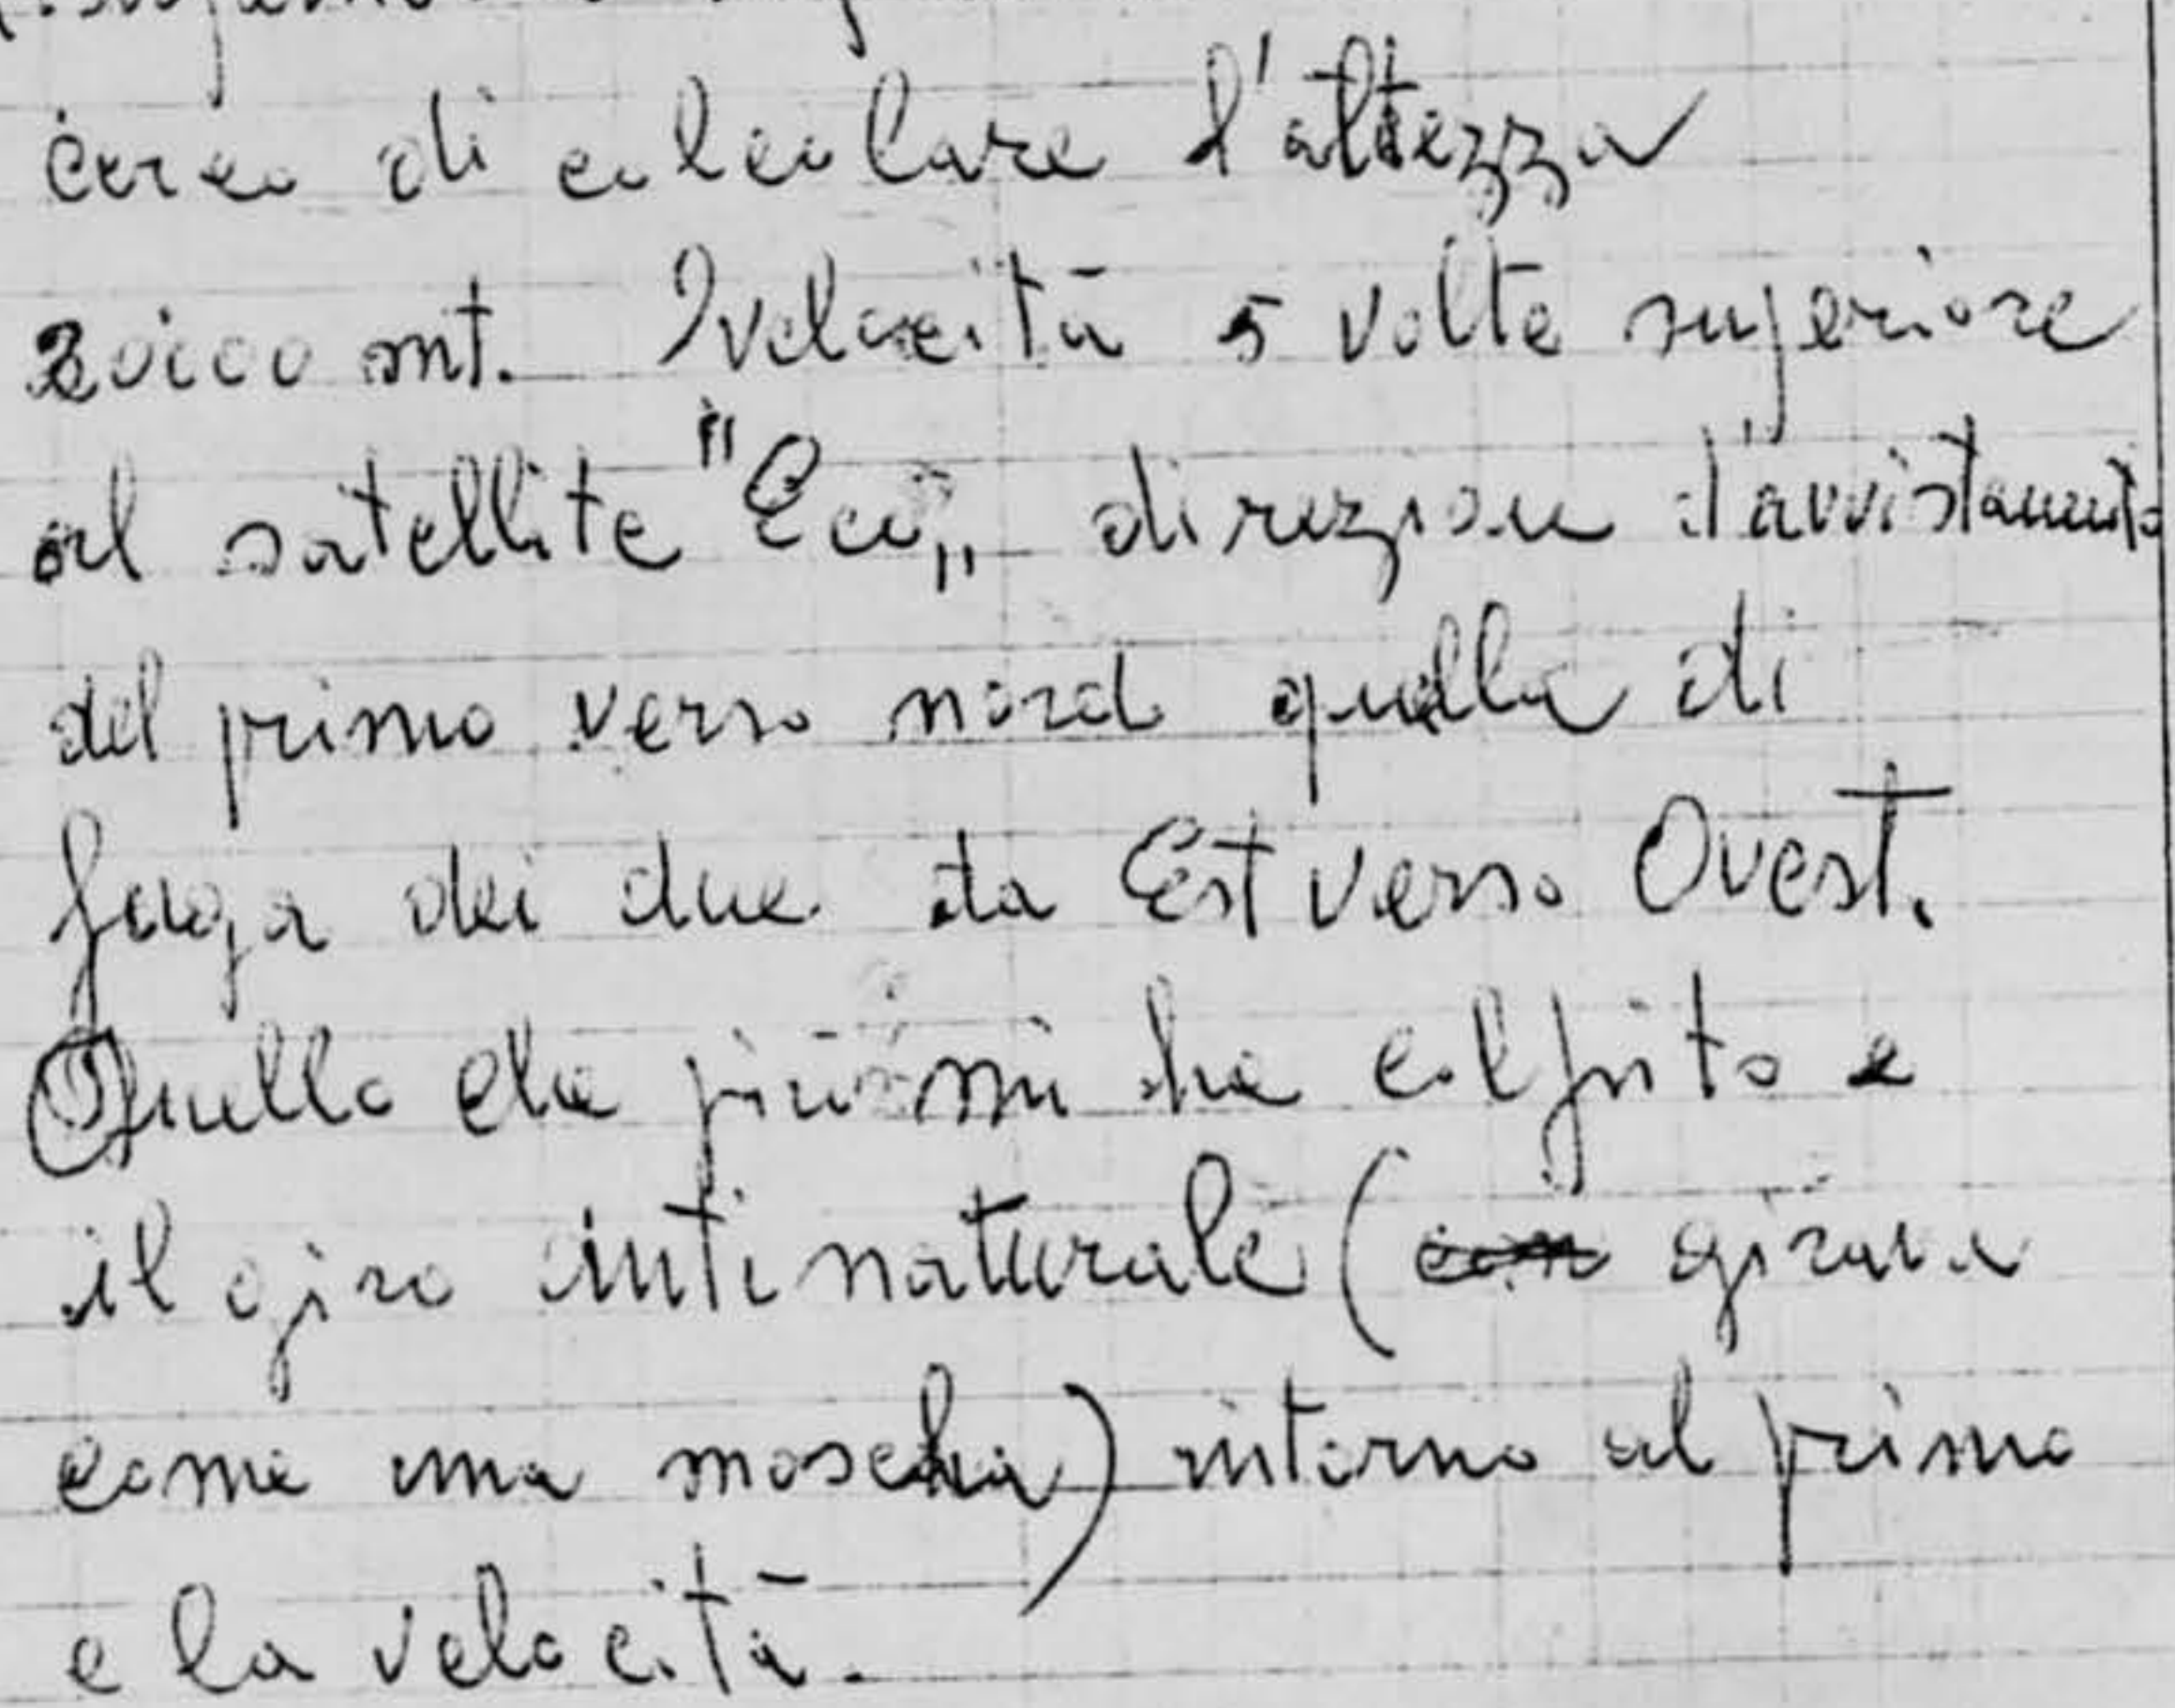 cerco di calcolare l'altezza
20000 mt. velocità 5 volte superiore
al satellite "Eco„ direzione d'avvistamento
del primo verso nord quella di
fuga dei due da Est verso Ovest.
Quello che più mi ha colpito e
il giro intinaturale (con girava
come una moscha) intorno al primo
e la velocità.